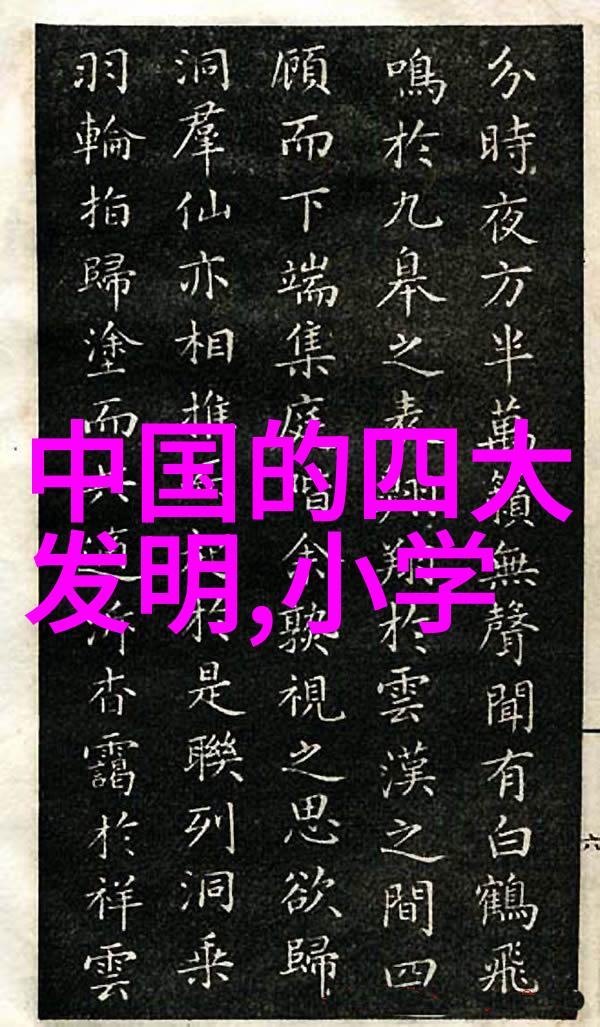 中国的四大
发明,小学
分時夜方半萬籟無聲聞有白鶴飛
鳴於九皋之表翱翔於雲漢之間四
顧而下端集庭階余歎視之思欲歸
洞羣仙亦相推於是聯列洞乘
羽輪拍歸塗而共杳靄於祥雲
六